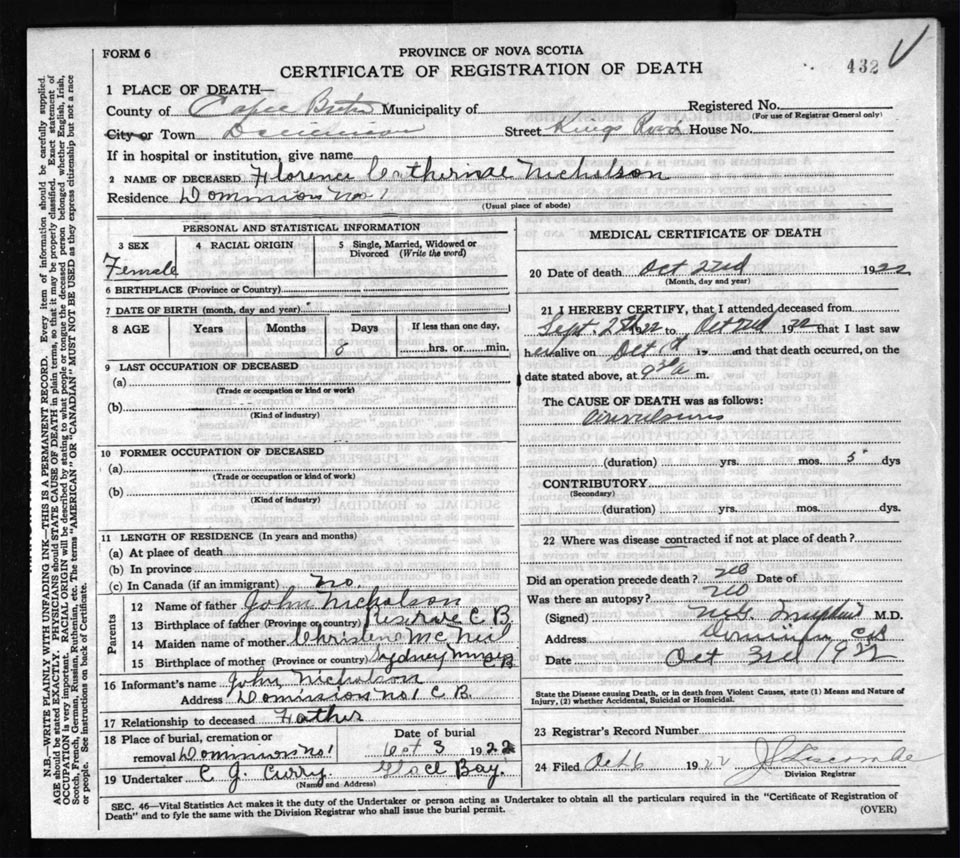 FORM 6
PROVINCE OF NOVA SCOTIA
CERTIFICATE OF REGISTRATION OF DEATH
432
1 PLACE OF DEATH—
County of Cape Breton Municipality of
Registered No.
(For use of Registrar General only)
City or Town Dominion Street Kings Road House No.
If in hospital or institution, give name
2 NAME OF DECEASED Florence Catherine Nicholson
Residence Dominion No 1
(Usual place of abode)
PERSONAL AND STATISTICAL INFORMATION
3 SEX 4 RACIAL ORIGIN 5 Single, Married, Widowed or Divorced (Write the word)
Female
6 BIRTHPLACE (Province or Country)
7 DATE OF BIRTH (month, day and year)
8 AGE Years Months Days If less than one day,
8 hrs. or min.
9 LAST OCCUPATION OF DECEASED
(a)
(Trade or occupation or kind or work)
(b)
(Kind of industry)
10 FORMER OCCUPATION OF DECEASED
(a)
(Trade or occupation or kind of work)
(b)
(Kind of industry)
11 LENGTH OF RESIDENCE (In years and months)
(a) At place of death
(b) In province
(c) In Canada (if an immigrant) no.
Parents
12 Name of father John Nicholson
13 Birthplace of father (Province or country) Reserve C B
14 Maiden name of mother Christena McNeil
15 Birthplace of mother (Province or country) Sydney Mines C B
16 Informant's name John Nicholson
Address Dominion No 1 C B.
17 Relationship to deceased Father
18 Place of burial, cremation or Date of burial
removal Dominion No 1 Oct 3 1922
19 Undertaker C J. Curry Glace Bay.
(Name and Address)
MEDICAL CERTIFICATE OF DEATH
20 Date of death Oct 2nd 1922
(Month, day and year)
21 I HEREBY CERTIFY, that I attended deceased from
Sept. 1922 to Oct 2nd 1922 that I last saw
her alive on Oct 19 and that death occurred, on the
date stated above, at m.
The CAUSE OF DEATH was as follows:
Convulsions
(duration) yrs. mos. 5 dys
CONTRIBUTORY
(Secondary)
(duration) yrs. mos. dys.
22 Where was disease contracted if not at place of death?
Did an operation precede death? no Date of
Was there an autopsy? no
(Signed) M.D.
Address Dominion C B
Date Oct 3rd 1922
State the Disease causing Death, or in death from Violent Causes, state (1) Means and Nature of
Injury, (2) whether Accidental, Suicidal or Homicidal.
23 Registrar's Record Number
24 Filed Oct 6 1922
Division Registrar
SEC. 46—Vital Statistics Act makes it the duty of the Undertaker or person acting as Undertaker to obtain all the particulars required in the "Certificate of Registration of
Death" and to fyle the same with the Division Registrar who shall issue the burial permit.
(OVER)
N.B.—WRITE PLAINLY WITH UNFADING INK—THIS IS A PERMANENT RECORD. Every item of information should be carefully supplied.
AGE should be stated EXACTLY. PHYSICIANS should STATE CAUSE OF DEATH in plain terms, so that it may be properly classified. Exact statement of
OCCUPATION is very important. RACIAL ORIGIN will be described by stating to what people or tongue the deceased person belonged whether English, Irish,
Scotch, French, German, Russian, Ruthenian, etc. The terms "AMERICAN" OR "CANADIAN" MUST NOT BE USED as they express citizenship but not a race
or people. See instructions on back of Certificate.